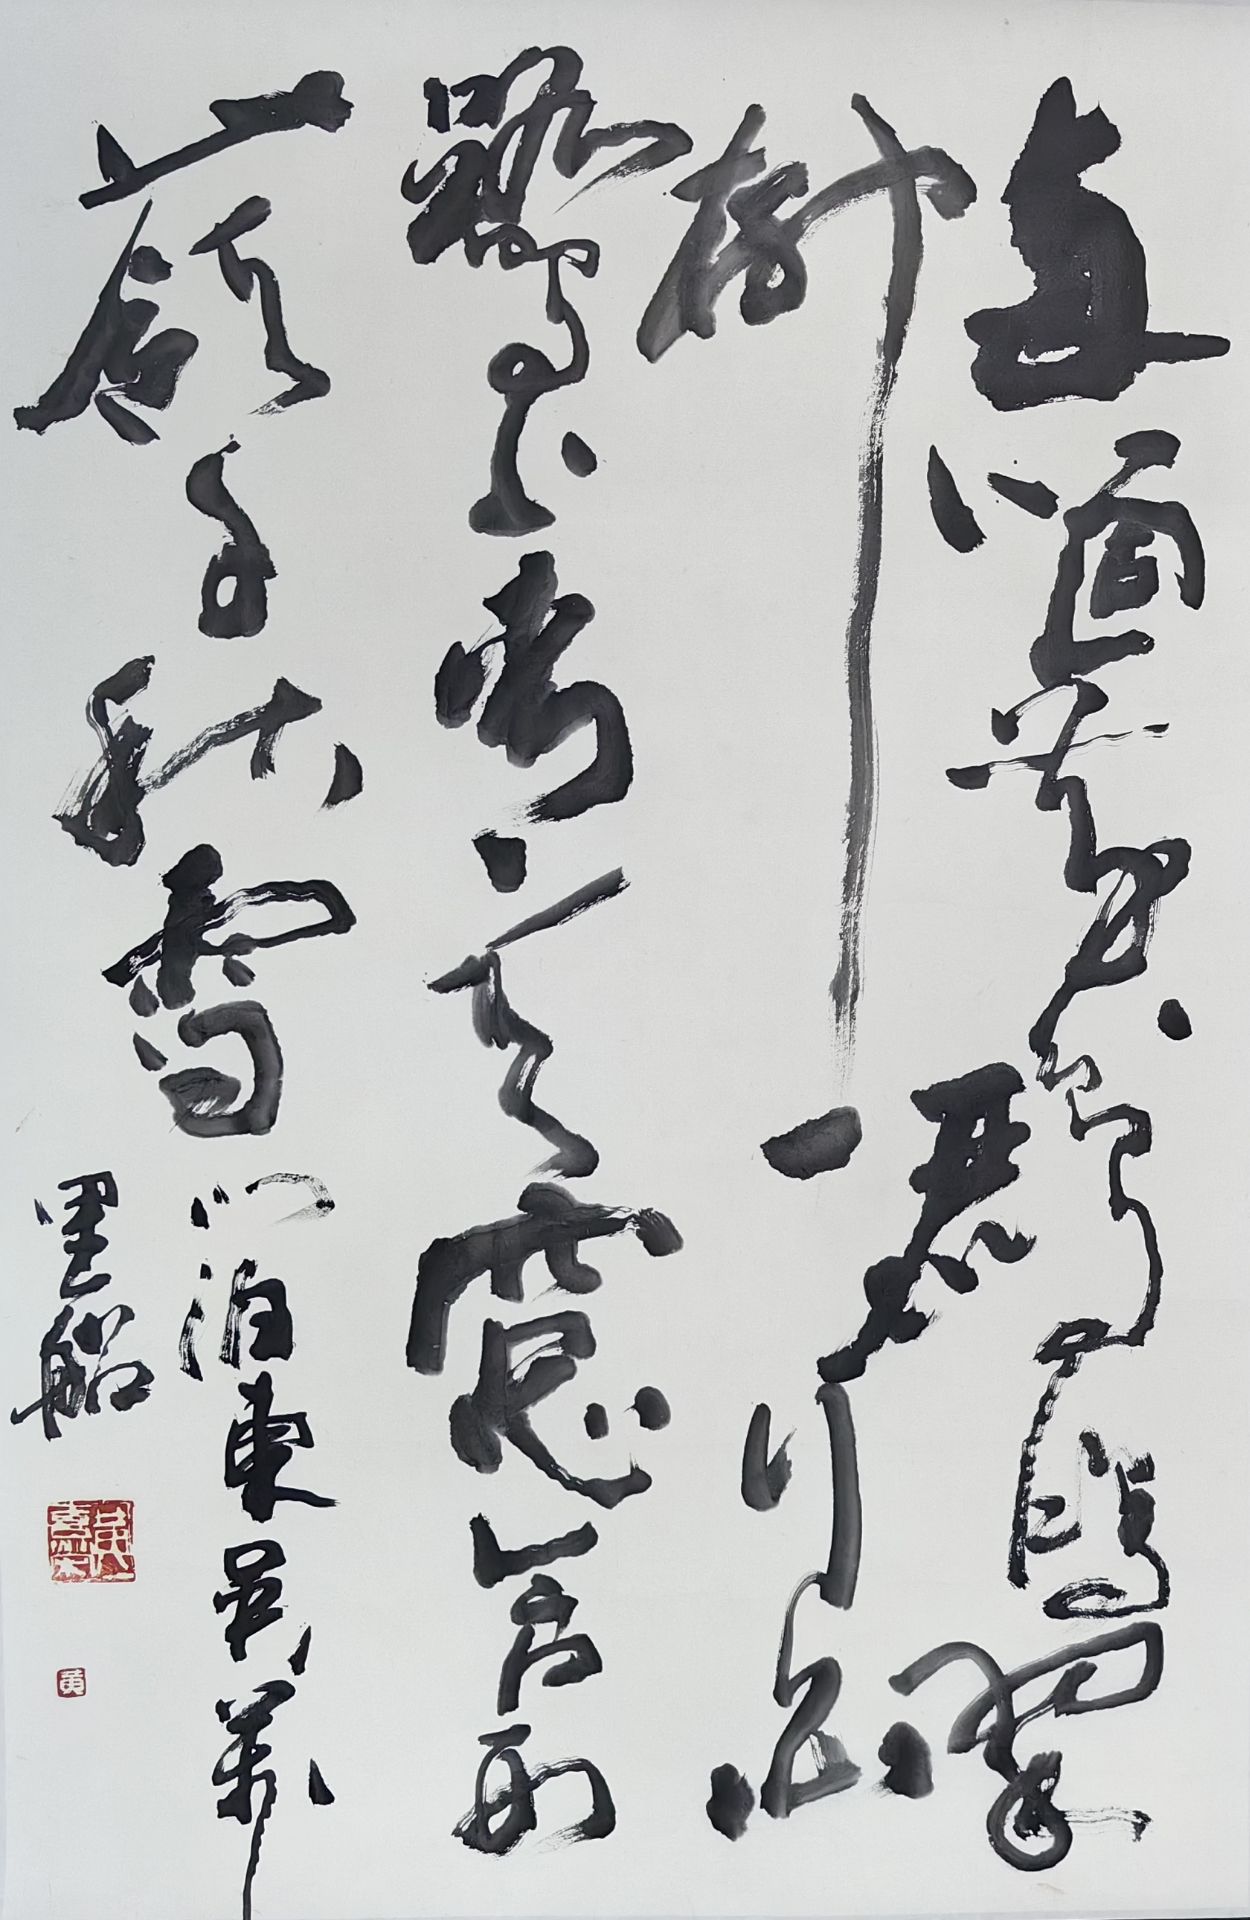 兩個黃鸝鳴翠
柳一行白
鷺上青天窗含西
嶺千秋雪門泊東吳萬
里船
黃